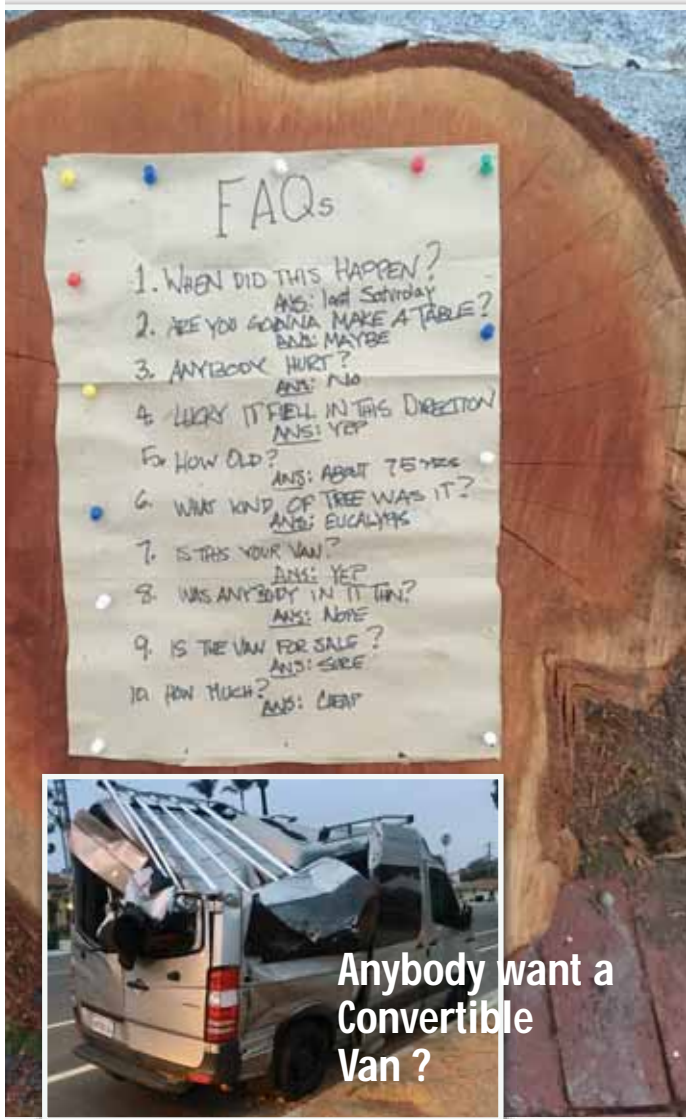 FAQs
1. WHEN DID THIS HAPPEN?
ANS: last Saturday
2. ARE YOU GONNA MAKE A TABLE?
ANS: MAYBE
3. ANYBODY HURT?
ANS: NO
4. LUCKY IT FELL IN THIS DIRECTION
ANS: YEP
5. HOW OLD?
ANS: ABOUT 75 YRS
6. WHAT KIND OF TREE WAS IT?
ANS:
7. IS THIS YOUR VAN?
ANS: YEP
8. WAS ANYBODY IN IT
ANS: NOPE
9. IS THE VAN FOR SALE?
ANS: SURE
10. HOW MUCH?
ANS: CHEAP
Anybody want a
Convertible
Van ?